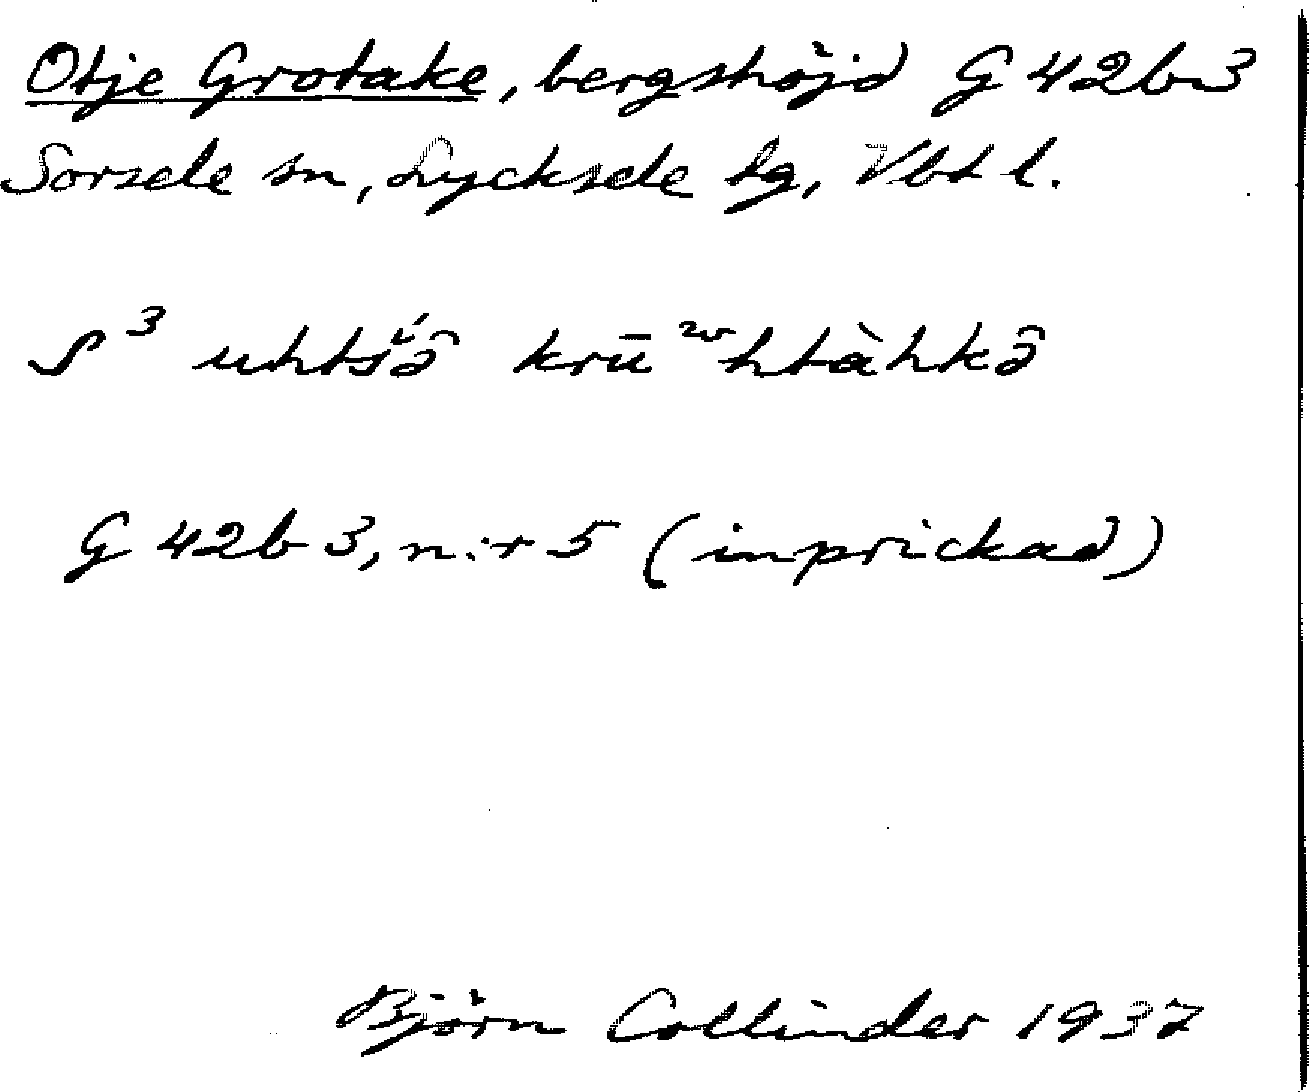 Otje Grotake, bergshöjd G 42b3
Sorsele sn, Lycksele lg, Vbt l.
S³ uhtśə̑̄ krūʷhtàhkə̑
G 42b3, n:r 5 (inprickad)
Björn Collinder 1937